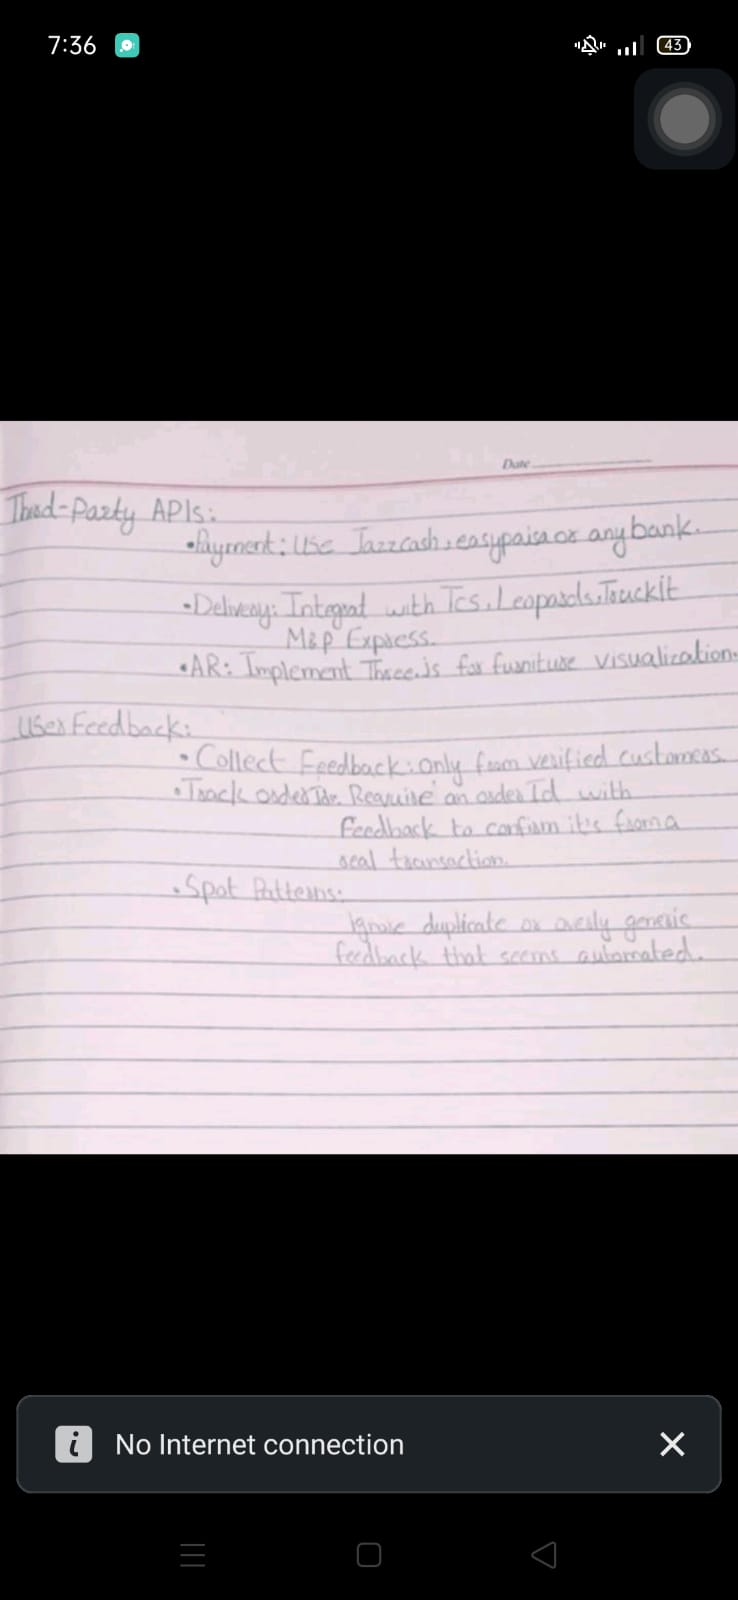 7:36
43
Date
Third-Party APIs:
•Payment: Use Jazzcash, easypaisa or any bank.
•Delivery: Integrat with Tcs, Leopards, Truckit
M&P Express.
•AR: Implement Three.js for furniture visualization.
User Feedback:
•Collect Feedback: only from verified customers.
•Track order Require an order Id with
Feedback to confirm it's from a
real transaction.
•Spot Patterns:
Ignore duplicate or overly generic
feedback that seems automated.
i No Internet connection